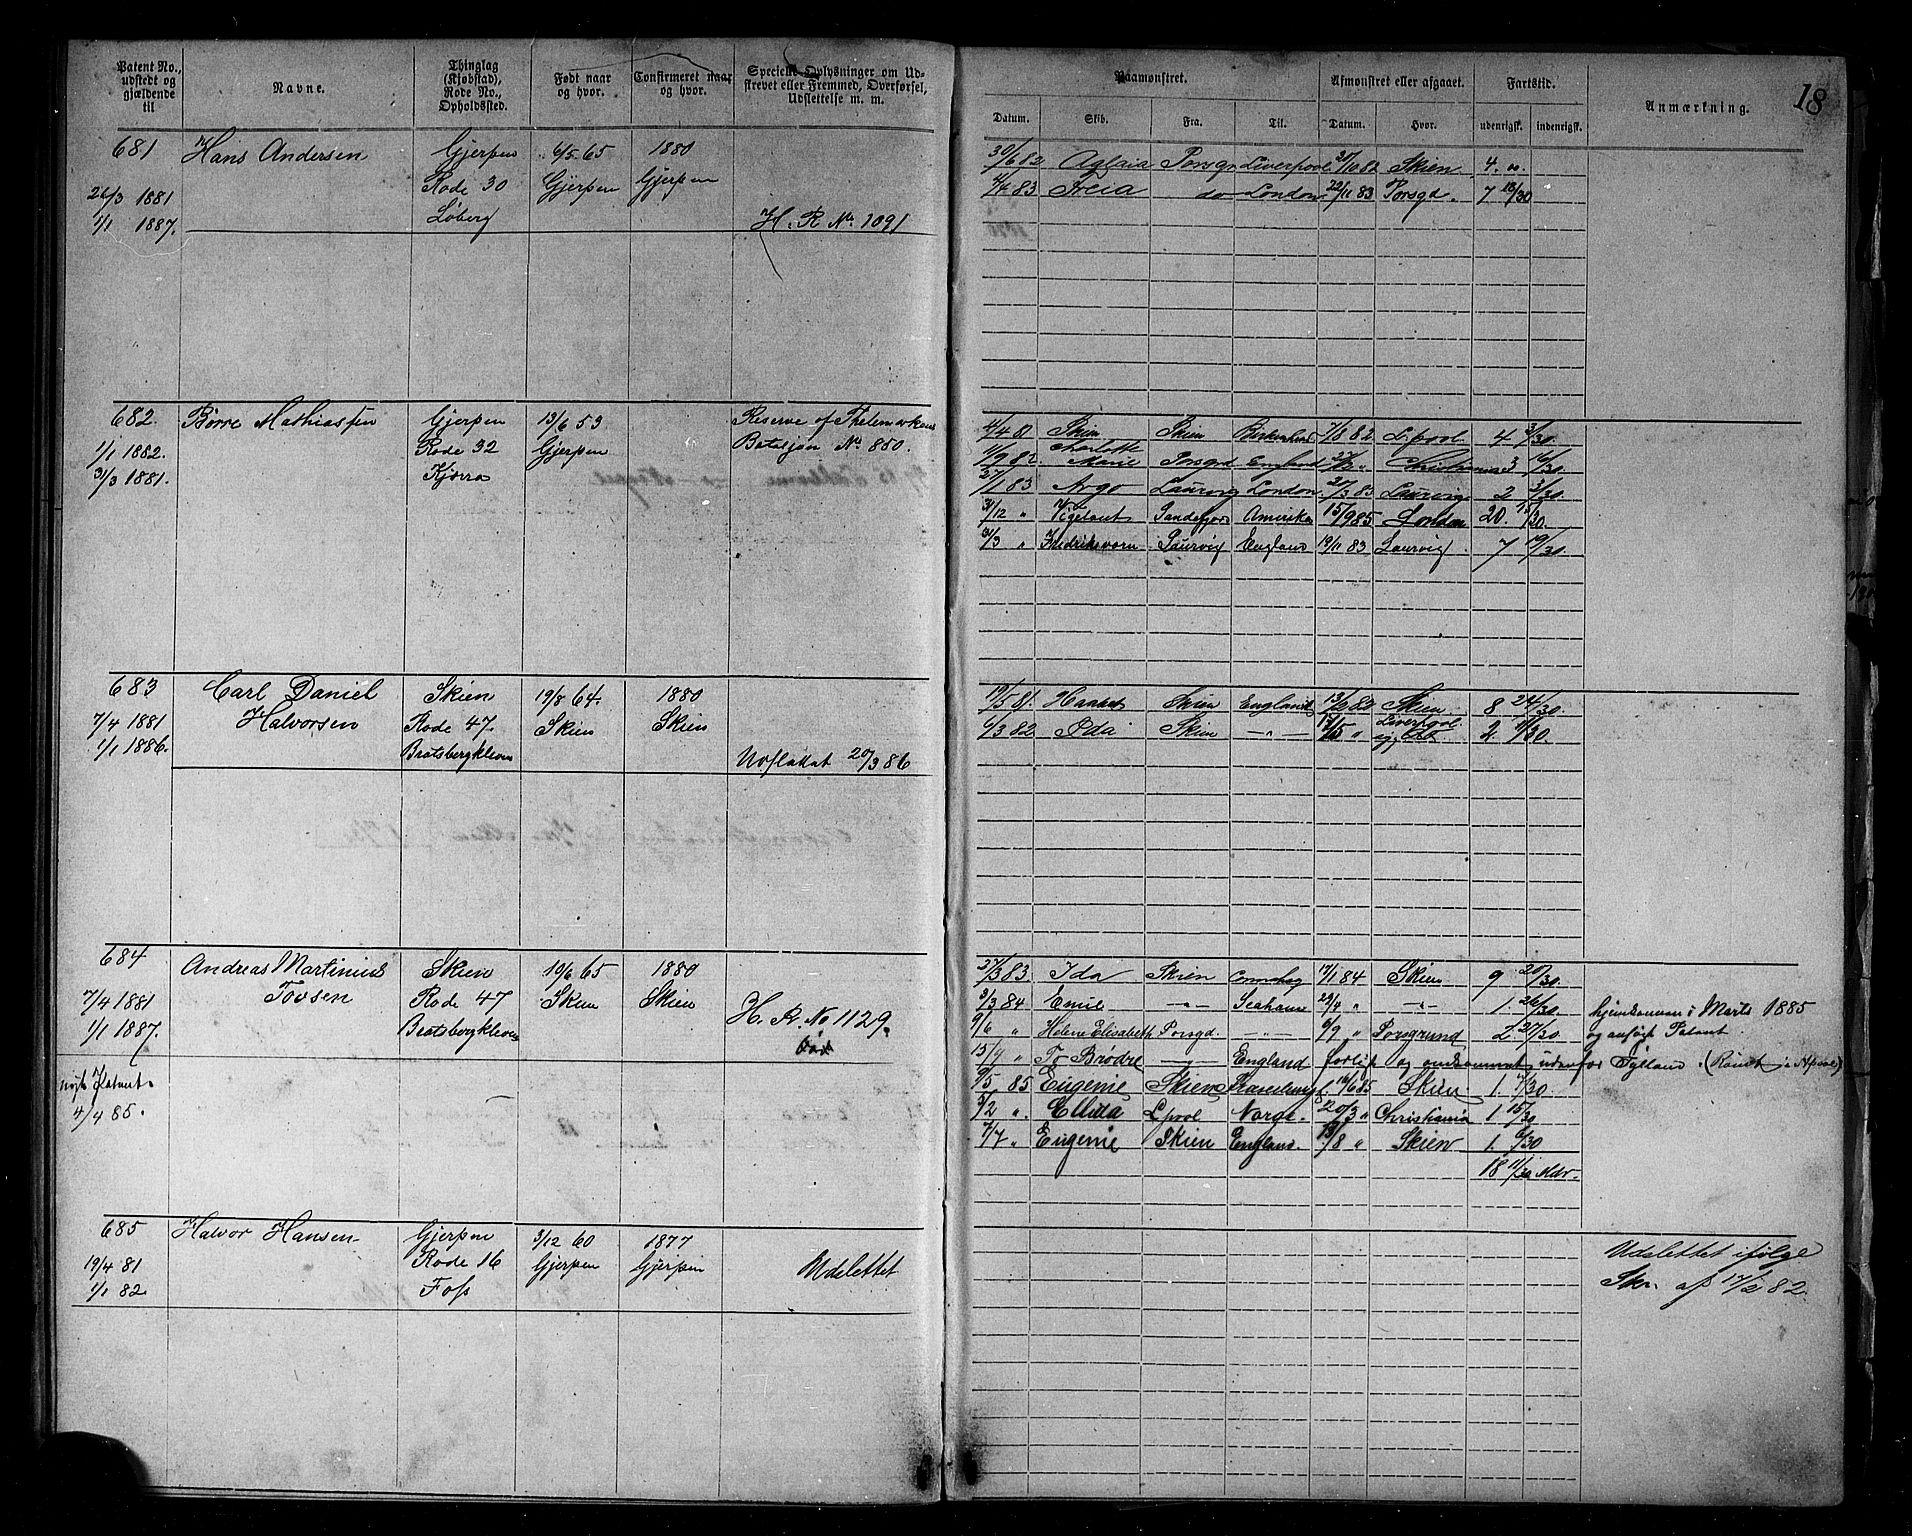 18
Patent No., udstedt og gjældende til
Navne.
Thinglag (Kjøbstad), Rode No., Opholdssted.
Født naar og hvor.
Confirmeret naar og hvor.
Specielle Oplysninger om Udskrevet eller Fremmed, Overførsel, Udslettelse m. m.
Paamønstret.
Afmønstret eller afgaaet.
Fartstid.
Anmærkning.
Datum. Skib. Fra. Til. Datum. Hvor. udenrigsk. indenrigsk.
681 Hans Andersen Gjerpen 6/5 65 1880
26/3 1881 Rode 30 Gjerpen Gjerpen
1/1 1887. Løberg H. R. No. 1091
30/6 82 Aglaia Porsgr Liverpool 27/10 82 Skien 4. "
4/4 83 Freia do London 22/11 83 Porsgd. 7 18/30
682. Børre Mathiassen Gjerpen 13/6 53 Reserve af Thelemarkens
1/1 1882. Rode 32 Gjerpen Bataljon No. 850.
31/3 1881. Kjørra
4/4 81 Skien Skien Birkenhead 7/8 82 L.pool 4 3/30
1/9 82 Charlotte Marie Porsgrd England 27/12 " Christiania 3 16/30
27/1 83 Argo Laurvig London 20/3 83 Laurvig 2 3/30
31/12 " Vigelant Sandefjord Amerika 15/9 85 London 20.
31/3 " Fredriksvorn Laurvig England 19/11 83 Laurvig 7 19/30
683 Carl Daniel Skien 19/8 64. 1880
7/4 1881 Halvorsen Rode 47. Skien Skien
1/1 1886. Bratsbergkleven Udslettet 20/3 86
19/5 81. Skien England 13/2 82 Skien 8 24/30
6/3 82 Oda Skien — " — 15/5 " Liverpool 2
684 Andreas Martinius Skien 10/6 65 1880
7/4 1881 Tovsen Rode 47 Skien Skien
1/1 1887. Bratsbergkleven H. R. No 1129.
nyt Patent
4/4 85.
27/3 83. Ida Skien 17/1 84 Skien 9 20/30
3/3 84 Emil — " — Seaham 29/4 " — " — 1. 26/30 hjemkommen i Marts 1885
9/6 " Helene Elisabeth Porsgd. — " — 6/9 " Porsgrund 2. 27/30 og ansøgt Patent.
15/9 " To Brødre — " — England forlist og omkommet udenfor Jylland.
9/5 85 Eugenie Skien 16/6 85 Skien 1. 7/30
5/2 " Ellida L.pool Norge. 20/3 " Christiania 1. 15/30
7/7 " Eugenie Skien England. 13/8 " Skien 1. 6/30
18 11/30 Mdr.
685 Halvor Hansen Gjerpen 3/12 60 1877
19/4 81 Rode 16 Gjerpen Gjerpen Udslettet
1/1 82. Foss
Udslettet ifølge
Skr. af 17/2 82.